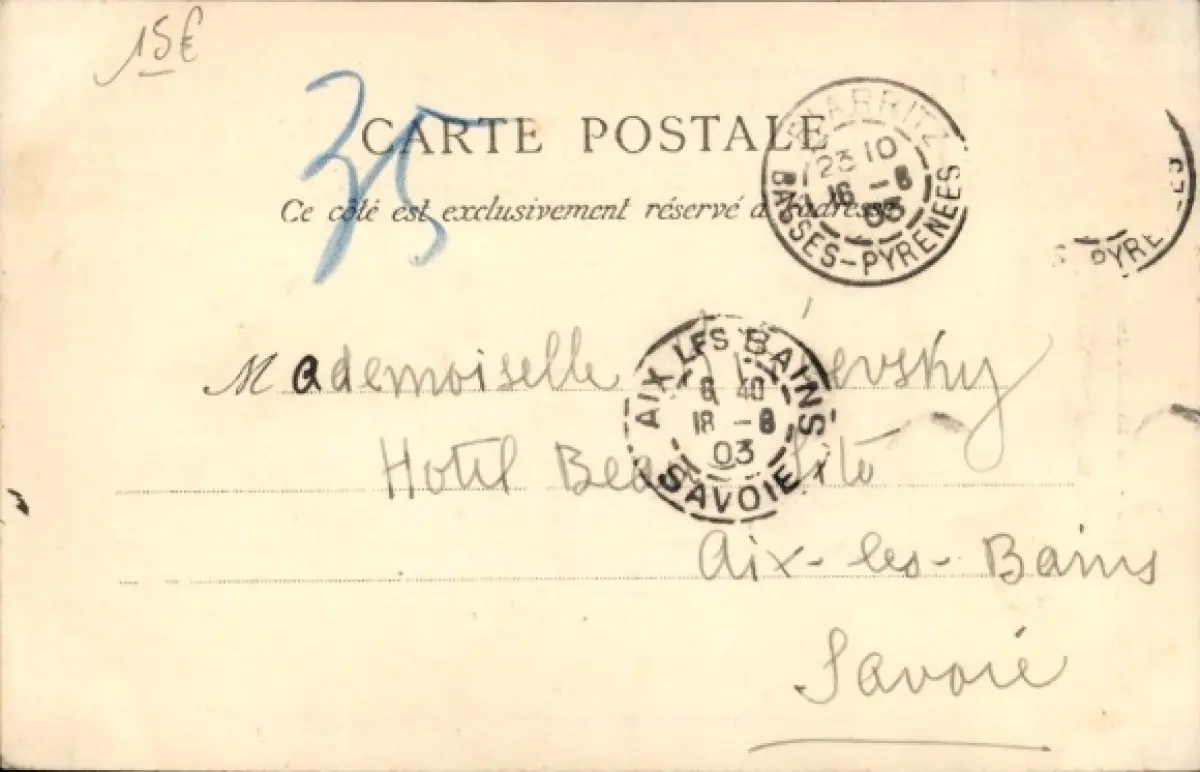 15€
35
CARTE POSTALE
Ce côté est exclusivement réservé à l'adresse
BIARRITZ
23 10
16 - 8
03
BASSES-PYRENEES
PYRE
Mademoiselle
AIX LES BAINS
8 40
18 - 8
03
SAVOIE
Hotel Beau Site
Aix-les-Bains
Savoie